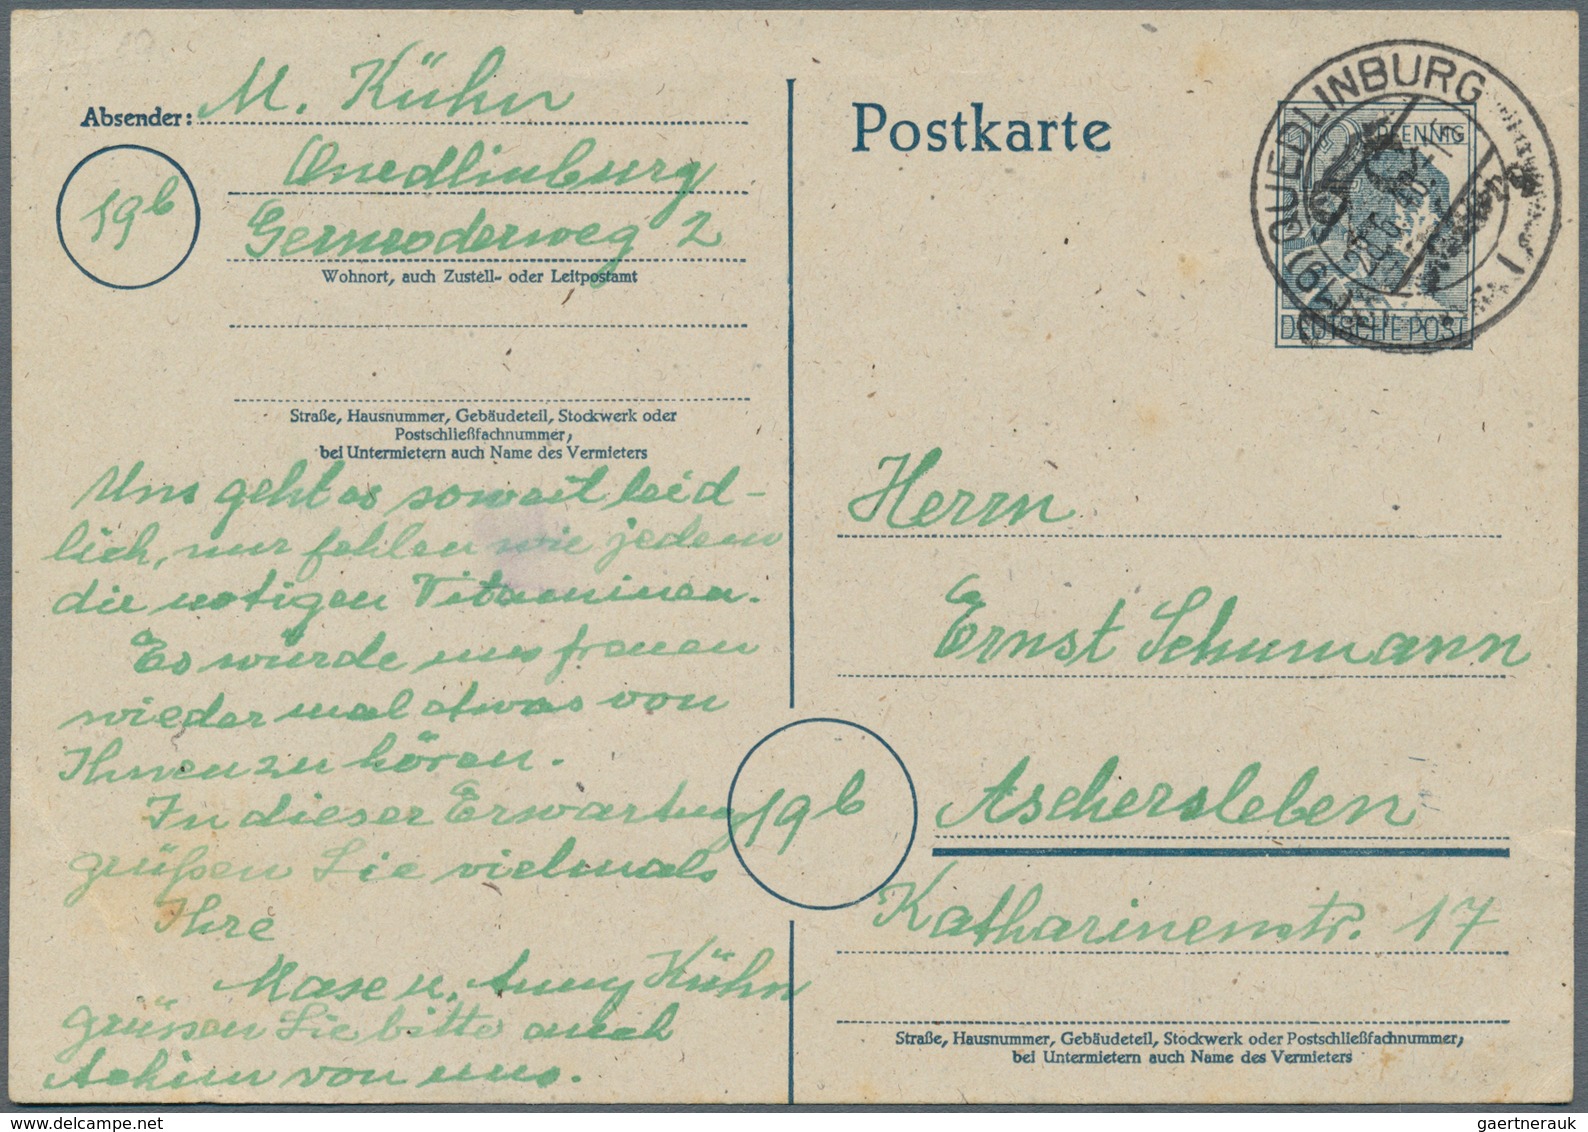 Absender: M. Kühn
Quedlinburg
19b
Gernroderweg 2
Wohnort, auch Zustell- oder Leitpostamt
Straße, Hausnummer, Gebäudeteil, Stockwerk oder
Postschließfachnummer;
bei Untermietern auch Name des Vermieters
Uns geht es soweit leid-
lich, nur fehlen wie jedem
die nötigen Vitaminen.
Es würde uns freuen
wieder mal etwas von
Ihnen zu hören.
In dieser Erwartung
grüßen Sie vielmals
Ihre
u. Anny Kühn
grüssen Sie bitte auch
Achim von uns.
Postkarte
QUEDLINBURG
(19b)
12 PFENNIG
DEUTSCHE POST
Herrn
Ernst Schumann
19b
Aschersleben
Katharinenstr. 17
Straße, Hausnummer, Gebäudeteil, Stockwerk oder Postschließfachnummer;
bei Untermietern auch Name des Vermieters
gaertnerauk